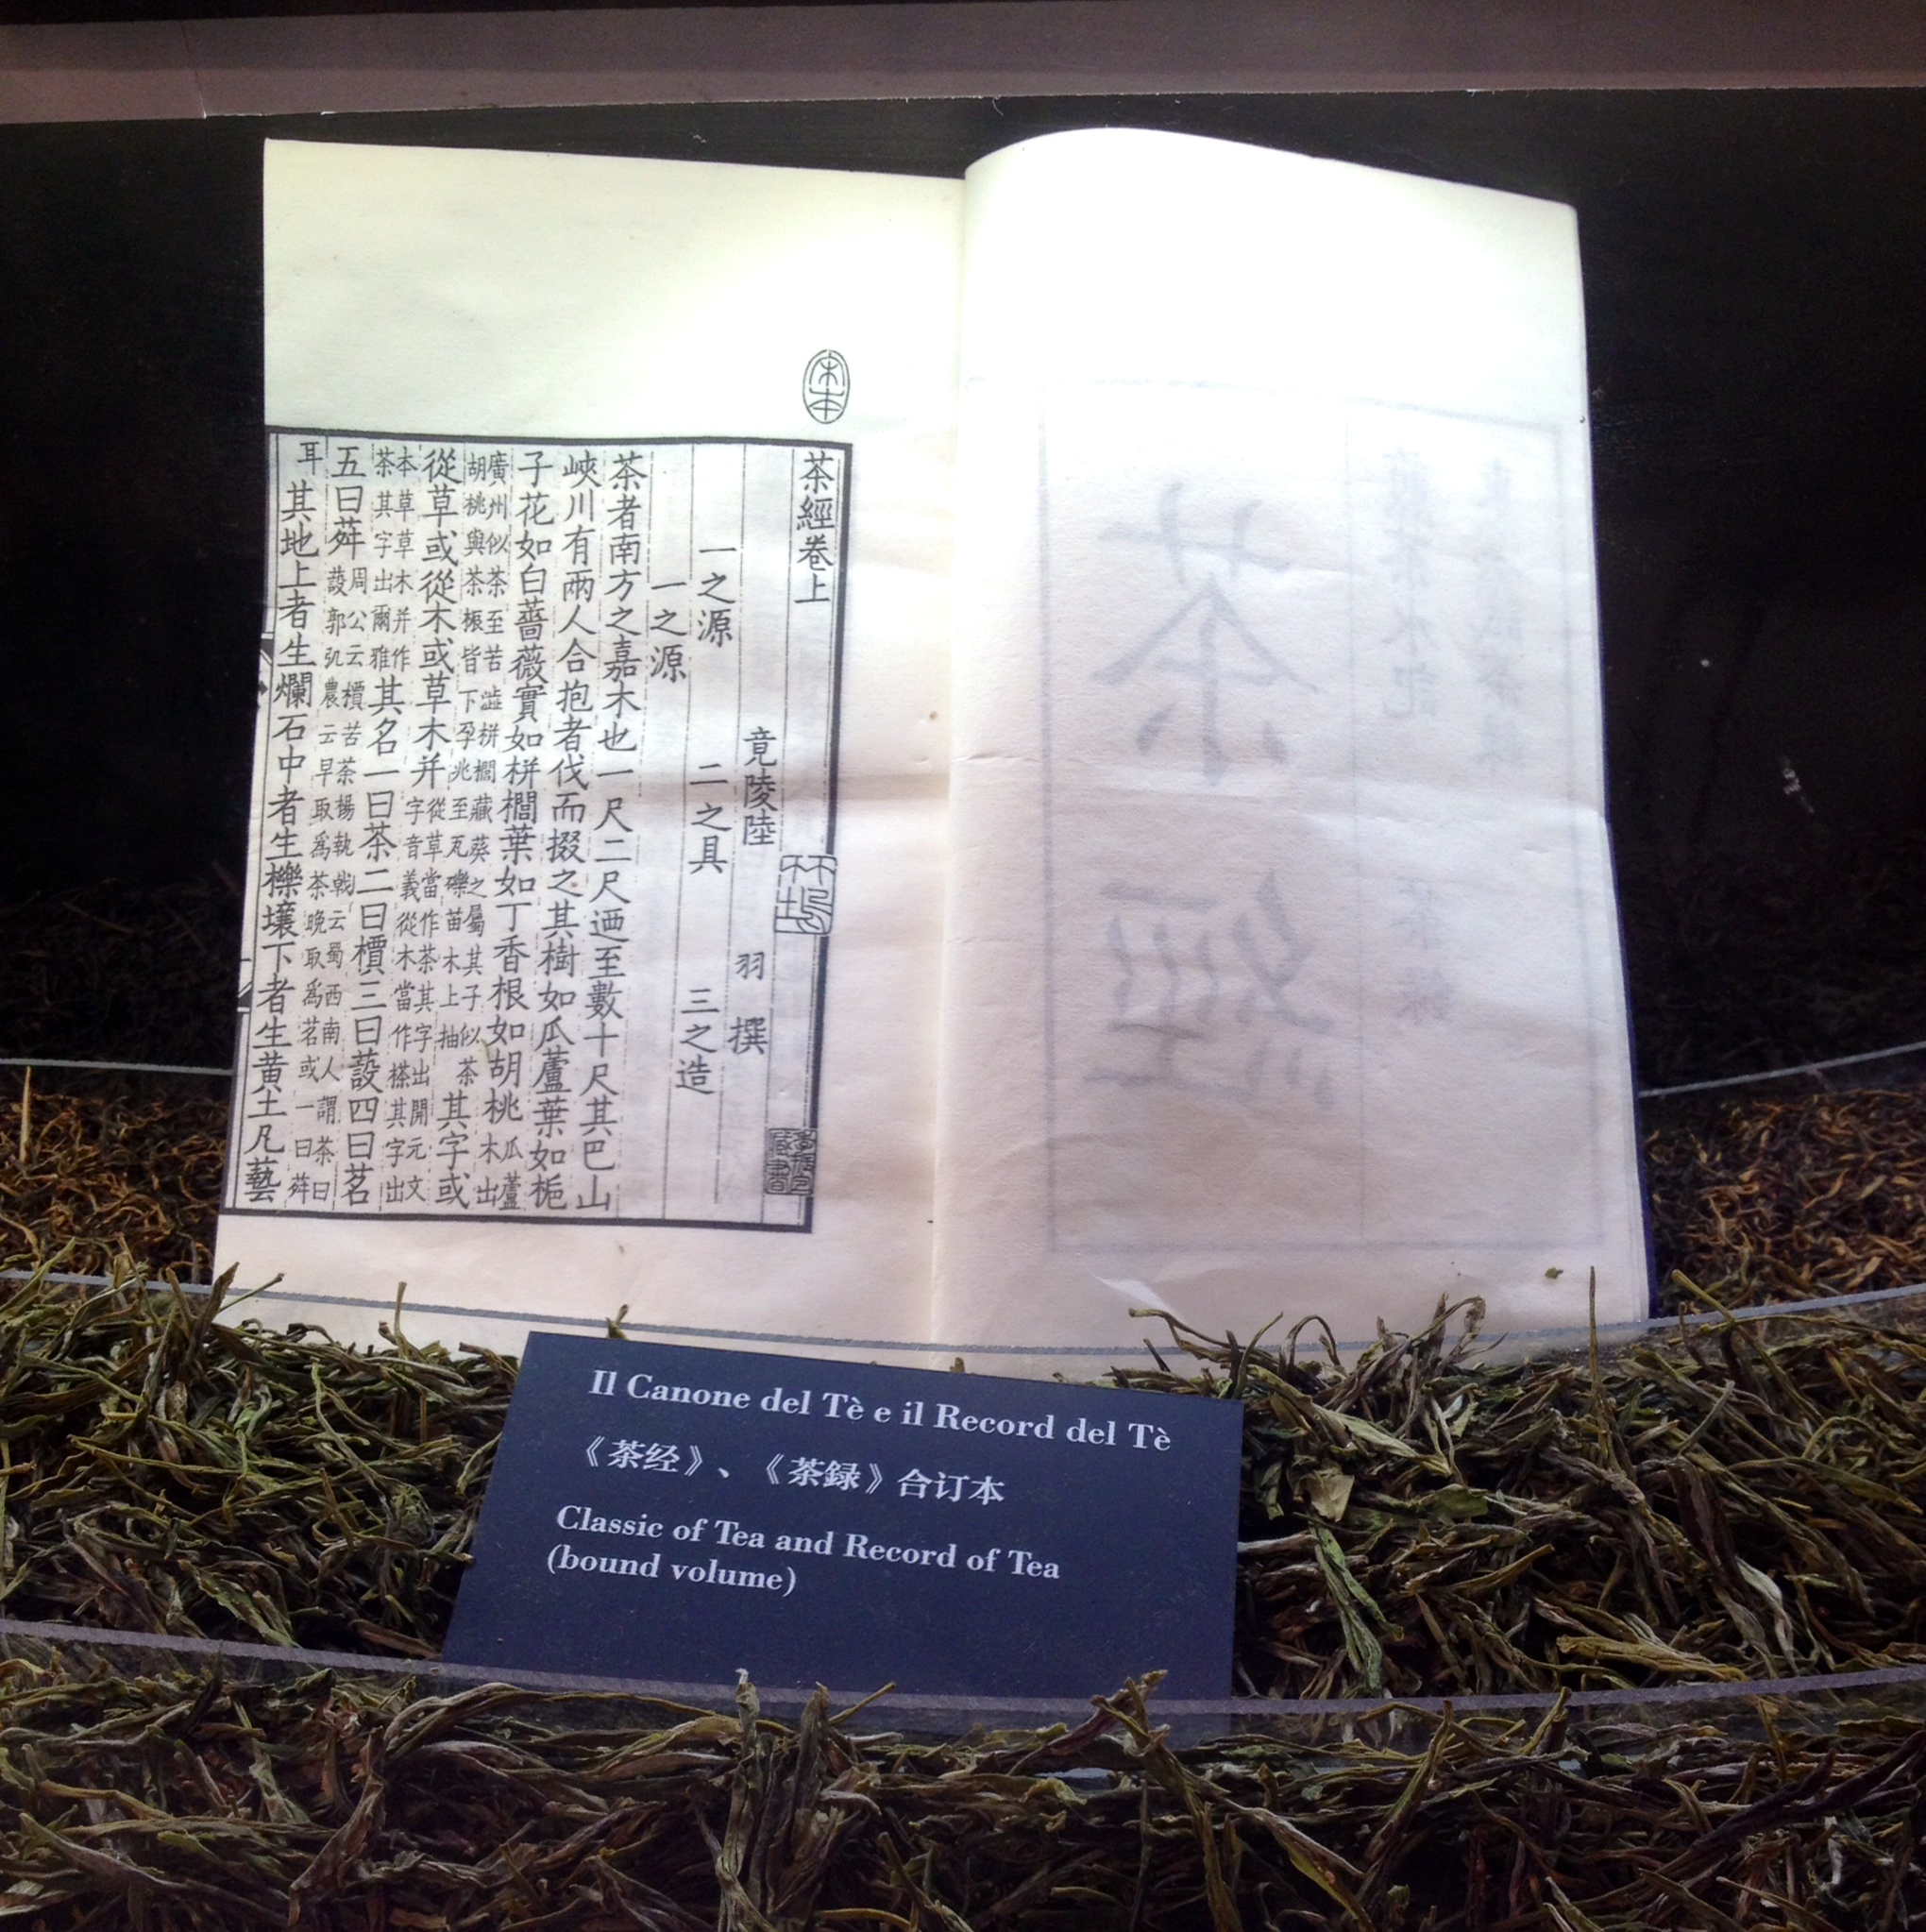 宋本
茶經卷上
竟陵陸 羽 撰
一之源 二之具 三之造
一之源
茶者南方之嘉木也一尺二尺迺至數十尺其巴山
峽川有兩人合抱者伐而掇之其樹如瓜蘆葉如梔
子花如白薔薇實如栟櫚葉如丁香根如胡桃瓜蘆木出
廣州似茶至苦澁栟櫚藏葵之屬其子似茶胡桃與茶根皆下孕兆至瓦礫苗木上抽其字或
從草或從木或草木并從草當作茶其字出開元文字音義從木當作搽其字出
本草草木并作茶其字出爾雅其名一曰茶二曰檟三曰蔎四曰茗
五曰荈周公云檟苦茶楊執戟云蜀西南人謂茶曰蔎郭弘農云早取爲茶晚取爲茗或一曰荈
耳其地上者生爛石中者生櫟壤下者生黄土凡藝
竹塢
茶經
Il Canone del Tè e il Record del Tè
《茶经》、《茶録》合订本
Classic of Tea and Record of Tea
(bound volume)